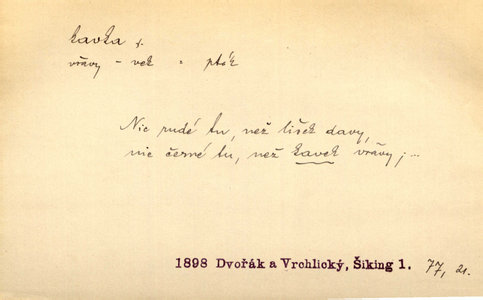 kavka f.
vřavy - vek = pták
Nic rudé tu, než lišek davy,
nic černé tu, než kavek vřavy;...
1898 Dvořák a Vrchlický, Šiking 1. 77, 21.